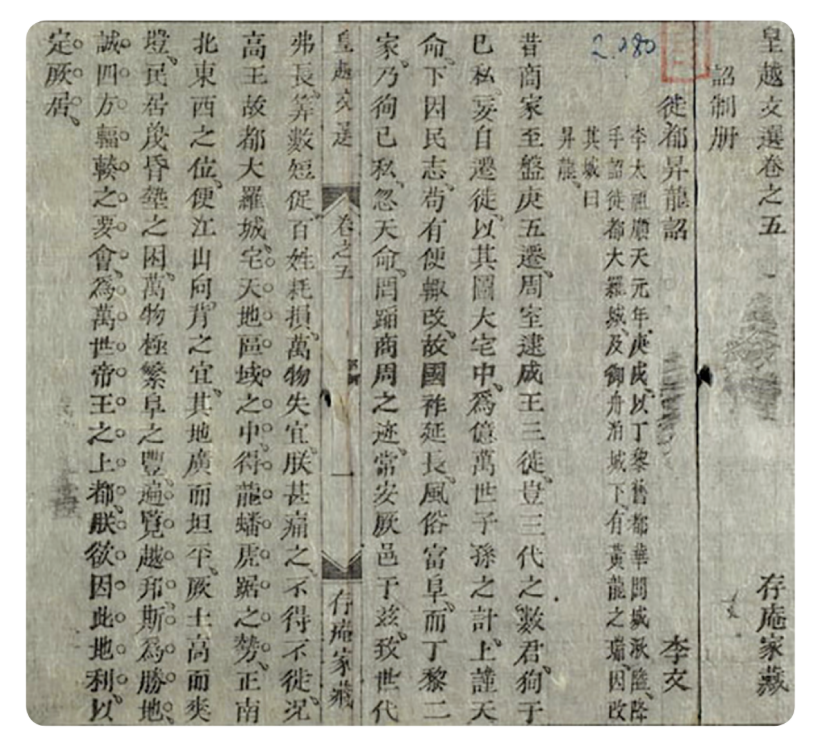 皇越文選卷之五 存庵家藏
詔制册
徙都昇龍詔 李文
李太祖順天元年庚戌、以丁黎舊都華閭城湫隘、降
手詔徙都大羅城、及御舟泊城下、有黃龍之瑞、因改
其城曰
昇龍、
昔商家至盤庚五遷、周室逮成王三徙、豈三代之數君、狥于
已私、妄自遷徙、以其圖大宅中、爲億萬世子孫之計、上謹天
命、下因民志、苟有便輙改、故國祚延長、風俗富阜、而丁黎二
家、乃狥已私、忽天命、罔蹈商周之迹、常安厥邑于兹、致世代
皇越文選 卷之五 一 存庵家藏
弗長、筭數短促、百姓耗損、萬物失宜、朕甚痛之、不得不徙、况
高王故都大羅城、宅天地區域之中、得龍蟠虎踞之勢、正南
北東西之位、便江山向背之宜、其地廣而坦平、厥土高而爽
塏、民居蔑昏墊之困、萬物極繁阜之豐、遍覽越邦、斯爲勝地、
誠四方輻輳之要會、爲萬世帝王之上都、朕欲因此地利、以
定厥居、